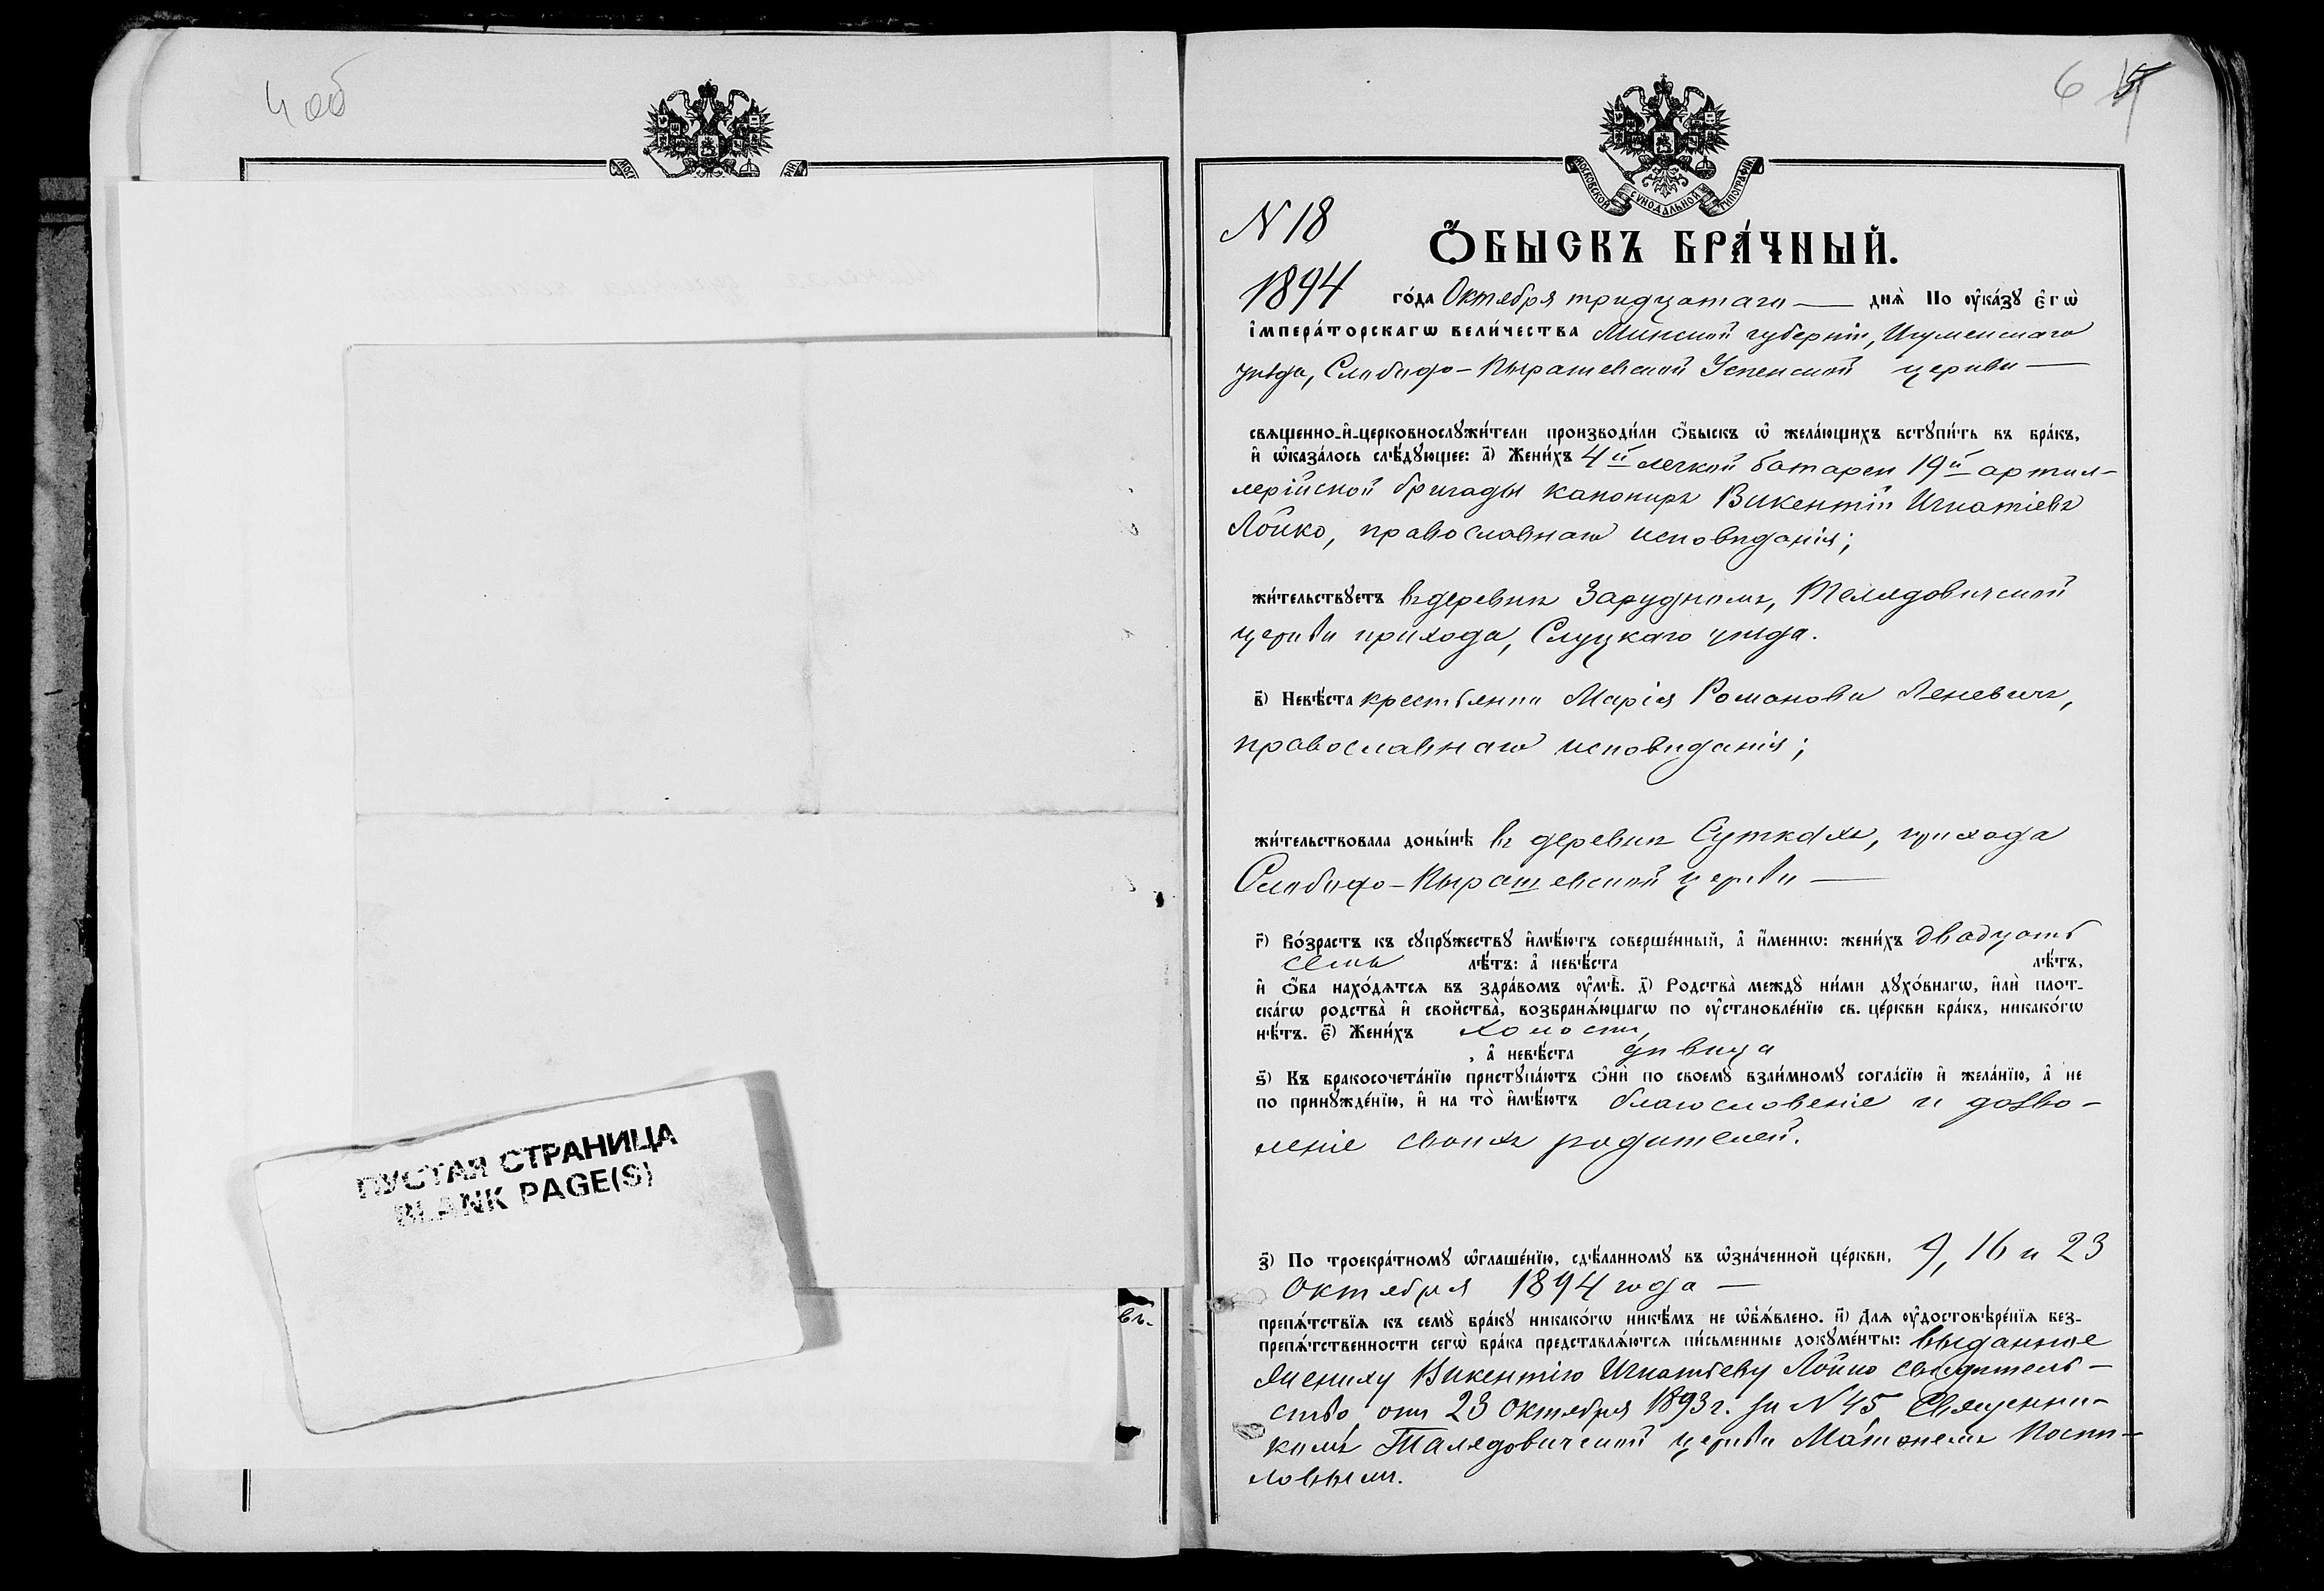 4 об
6
МОСКОВСКОЙ СѴНОДАЛЬНОЙ ТИПОГРАФІИ
N 18
Ѻ҆БЫСКЪ БРА́ЧНЫЙ.
1894 го́да Октября тридцатаго — днѧ̀ По оу҆ка́зꙋ є҆гѡ̀
і҆мпера́торскагѡ вели́чества Минской губерніи, Игуменскаго
уѣзда, Слободо-Пырашевской Успенской церкви —
свѧщенно-и҆-церковнослꙋжи́тели производи́ли ѻ҆́быскъ ѡ҆ жела́ющихъ встꙋпи́ть въ бра́къ,
и҆ ѡ҆каза́лось слѣ́дꙋющее: а҃) Жени́хъ 4й легкой батареи 19й артил-
лерійской бригады канониръ Викентій Игнатіевъ
Лойко, православнаго исповѣданія;
жи́тельствꙋетъ въ деревнѣ Заруднomъ, Телядовичской
церкви прихода, Слуцкаго уѣзда.
в҃) Невѣ́ста крестьянка Марія Романова Леневичъ,
православнаго исповѣданія;
жи́тельствовала доны́нѣ въ деревнѣ Суткахъ, прихода
Слободо-Пырашевской церкви —
г҃) Во́зрастъ къ сꙋпрꙋ́жествꙋ и҆мѣ́ютъ соверше́нный, а҆ и҆́меннѡ: жени́хъ двадцать
семь лѣ́тъ: а҆ невѣ́ста лѣ́тъ,
и҆ ѻ҆́ба нахо́дѧтсѧ въ здра́вомъ оу҆мѣ̀. д҃) Родства̀ междꙋ̀ ни́ми дꙋхо́внагѡ, и҆лѝ плот-
ска́гѡ родства̀ и҆ свойства̀, возбранѧ́ющагѡ по оу҆становле́нїю св. це́ркви бра́къ, никако́гѡ
нѣ́тъ. є҃) Жени́хъ холостъ,
, а҆ невѣ́ста дѣвица
ѕ҃) Къ бракосочета́нїю пристꙋпа́ютъ ѻ҆нѝ по своемꙋ̀ взаи́мномꙋ согла́сїю и҆ жела́нїю, а҆ не
по принꙋжде́нїю, и҆ на то̀ и҆мѣ́ютъ благословеніе и дозво-
леніе своихъ родителей.
з҃) По троекра́тномꙋ ѡ҆глаше́нїю, сдѣ́ланномꙋ въ ѡ҆зна́ченной це́ркви, 9, 16 и 23
Октября 1894 года —
препѧ́тствїѧ къ семꙋ̀ бра́кꙋ никако́гѡ никѣ́мъ не ѡ҆б̾ѧ́влено. и҃) Длѧ оу҆достовѣре́нїѧ без-
препѧ́тственности сегѡ̀ бра́ка представлѧ́ютсѧ пи́сьменные докꙋме́нты: выданное
жениху Викентію Игнатьеву Лойко свидѣтель-
ство отъ 23 Октября 1893 г. за N 45 Священни-
комъ Талядовичской церкви
въ.
ПУСТАЯ СТРАНИЦА
BLANK PAGE(S)